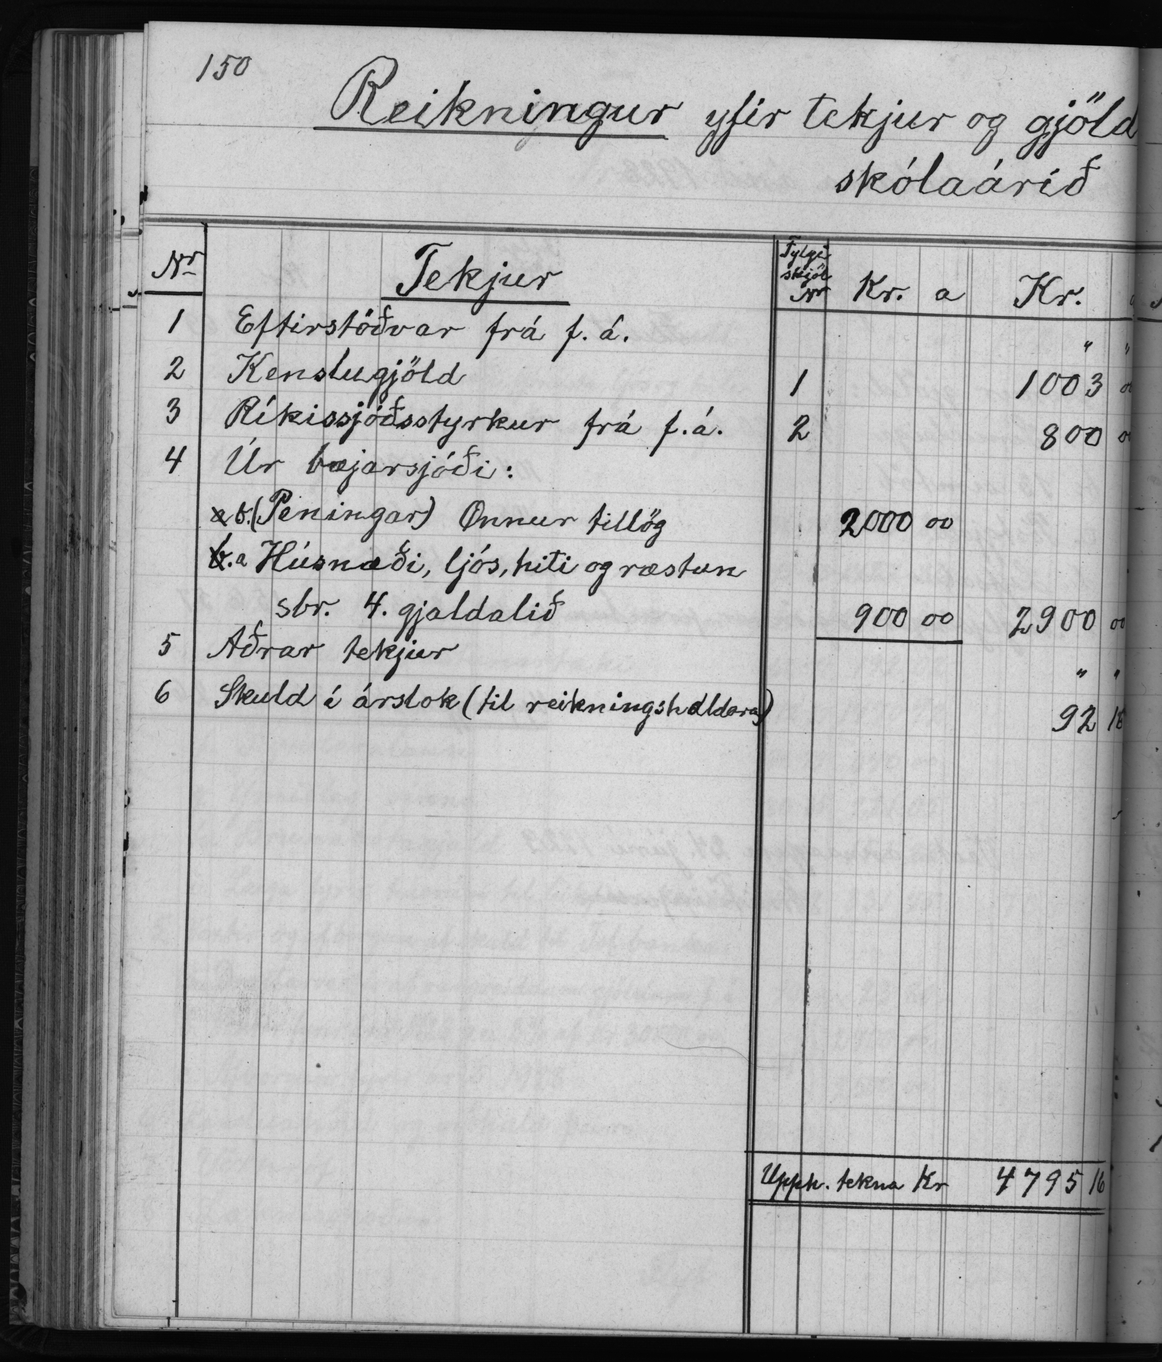 150
Reikningur yfir tekjur og gjöld
skólaárið
Nr Tekjur Fylgi skjöl Nr Kr. a Kr.
1 Eftirstöðvar frá f. á. " "
2 Kenslugjöld 1 1003
3 Ríkissjóðsstyrkur frá f.á. 2 800
4 Úr bæjarsjóði:
a b. (Peningar) Önnur tillög 2000 00
b. a Húsnæði, ljós, hiti og ræstun
sbr. 4. gjaldalið 900 00 2900 00
5 Aðrar tekjur " "
6 Skuld í árslok (til reikningshaldara) 92 16
Upph. tekna Kr 4795 16